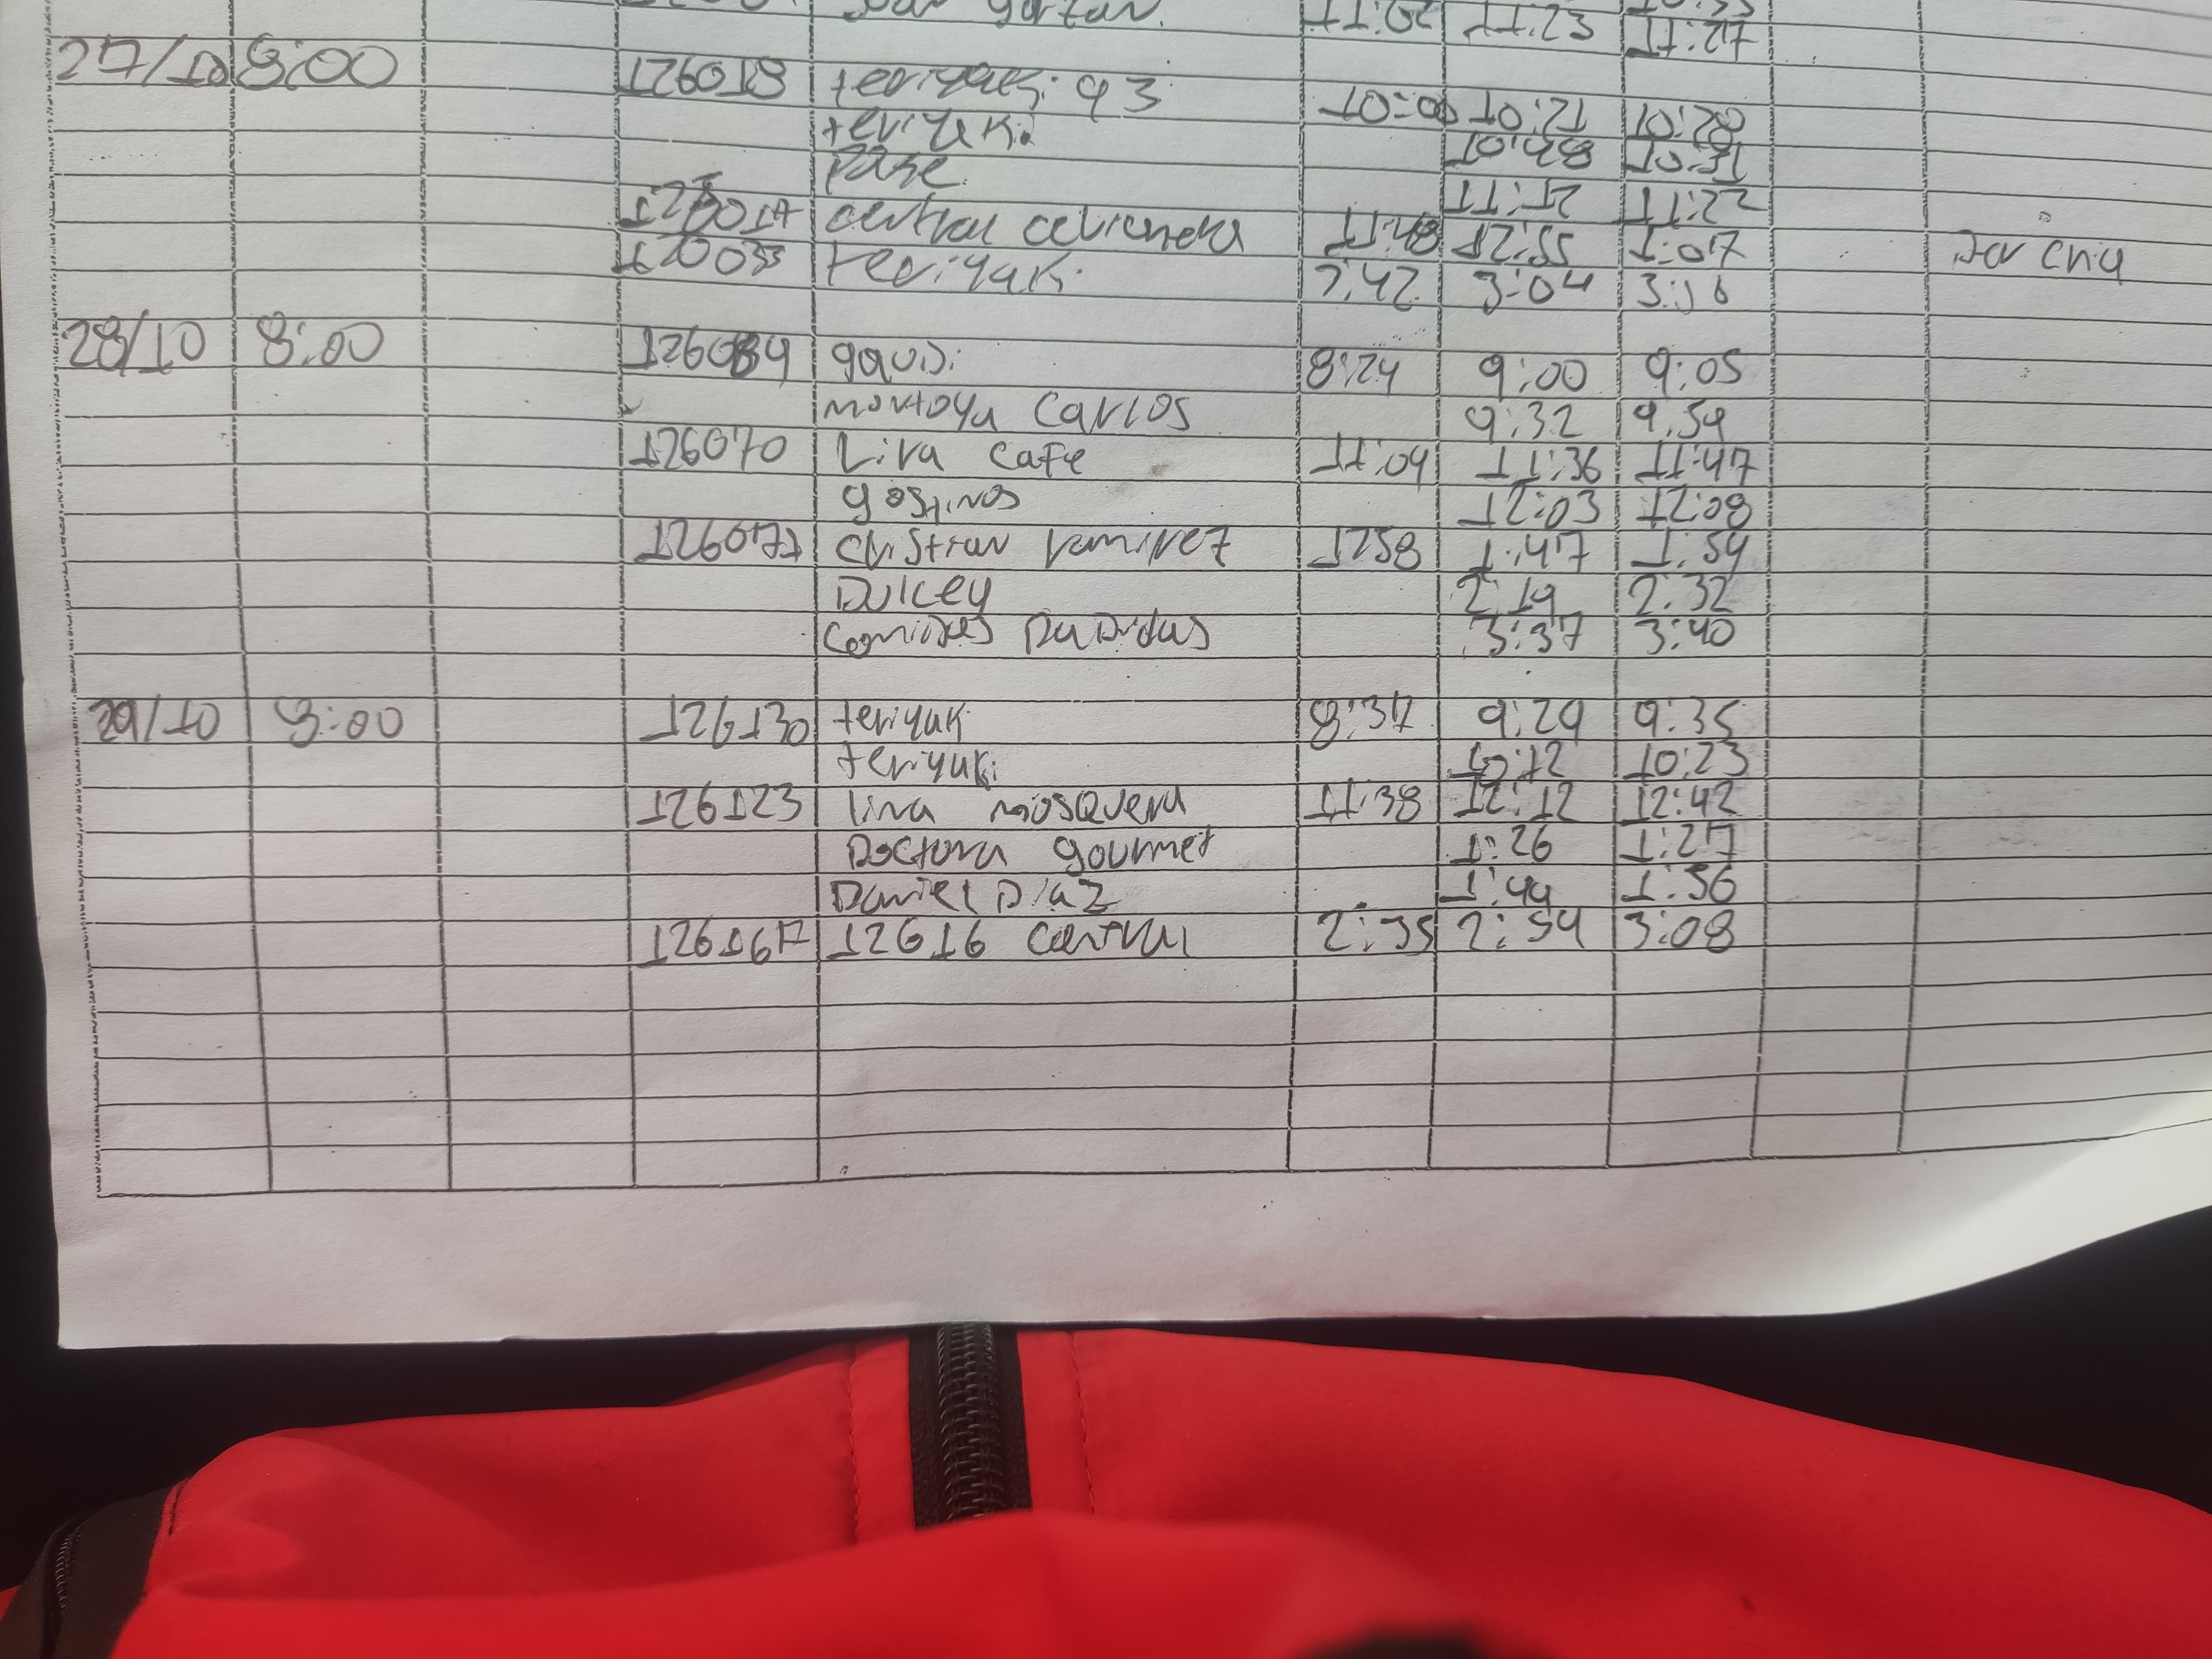 11:20 11:23 11:27
27/10 8:00 126018 teriyaki 93 10:00 10:21 10:28
teriyaki 10:48 10:51
Pase 11:12 11:22
central 11:48 12:55 1:07
teriyaki 3:04 3:16
28/10 8:00 8:24 9:00 9:05
montoya Carlos 9:32 9:59
126070 Lina Cafe 11:04 11:36 11:47
12:03 12:08
126077 Cristian ramirez 1258 1:47 1:54
Dulcey 2:19 2:32
3:37 3:40
29/10 8:00 126130 teriyaki 8:37 9:29 9:35
teriyaki 10:12 10:23
126123 lina mosquera 11:38 12:12 12:42
Doctora gourmet 1:26 1:27
Daniel Diaz 1:44 1:56
126167 12616 Central 2:35 2:54 3:08